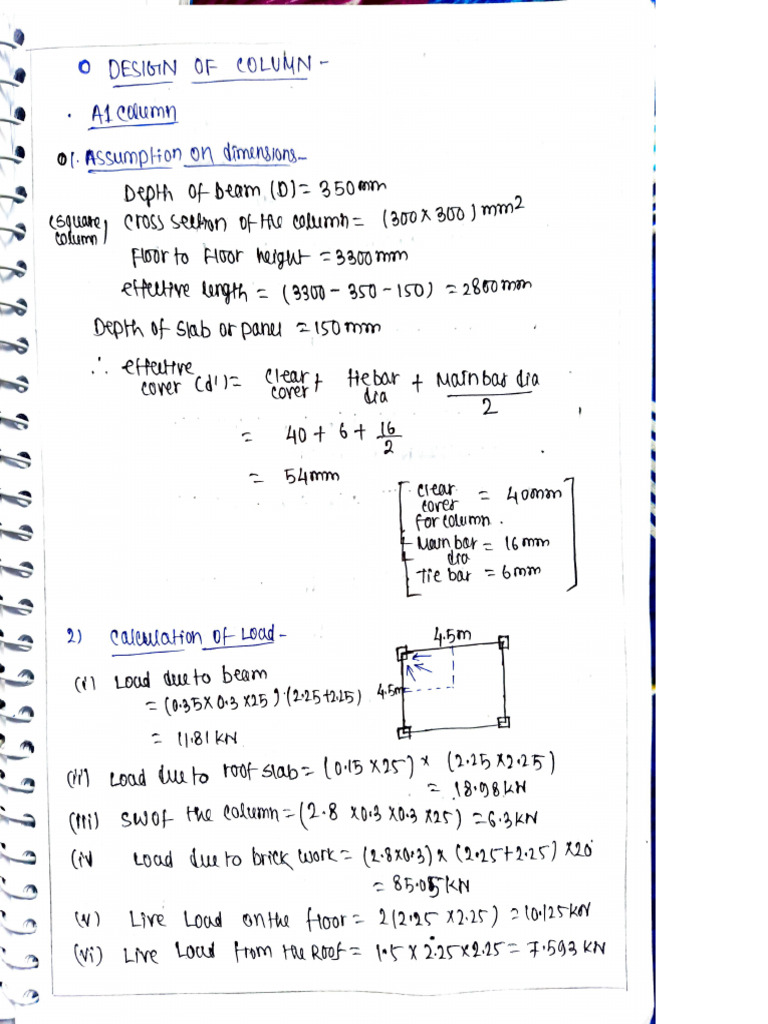 ○ DESIGN OF COLUMN -
• A1 column
01. Assumption on dimensions -
Depth of beam (D) = 350mm
(square column) cross section of the column = (300 x 300) mm2
Floor to Floor height = 3300mm
effective length = (3300 - 350 - 150) = 2800mm
Depth of slab or panel = 150mm
∴ effective cover (d') = clear cover + tie bar dia + Main bar dia / 2
= 40 + 6 + 16/2
= 54mm
[clear cover for column. = 40mm
Main bar dia = 16mm
Tie bar = 6mm]
2) Calculation of Load -
4.5m
4.5m
(i) Load due to beam
= (0.35 x 0.3 x 25) · (2.25+2.25)
= 11.81 KN
(ii) Load due to roof slab = (0.15 x 25) x (2.25 x 2.25)
= 18.98 KN
(iii) SW of the column = (2.8 x 0.3 x 0.3 x 25) = 6.3 KN
(iv Load due to brick work = (2.8x0.3) x (2.25+2.25) x 20
= 85.05 KN
(v) Live Load on the floor = 2(2.25 x 2.25) = 10.125 KN
(vi) Live Load from the Roof = 1.5 x 2.25 x 2.25 = 7.593 KN